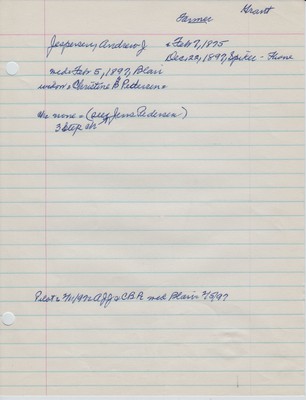 Grant
Farmer
Jespersen, Andrew J * Feb 7, 1875
Dec 22, 1897, Spiker - Home
md Feb 5, 1897, Blair
widow, Christine B Petersen
ch none = (see Jens Pedersen)
3 step ch
Pilot 2/11/97 2 Aff of CBA md Blair 2/5/97